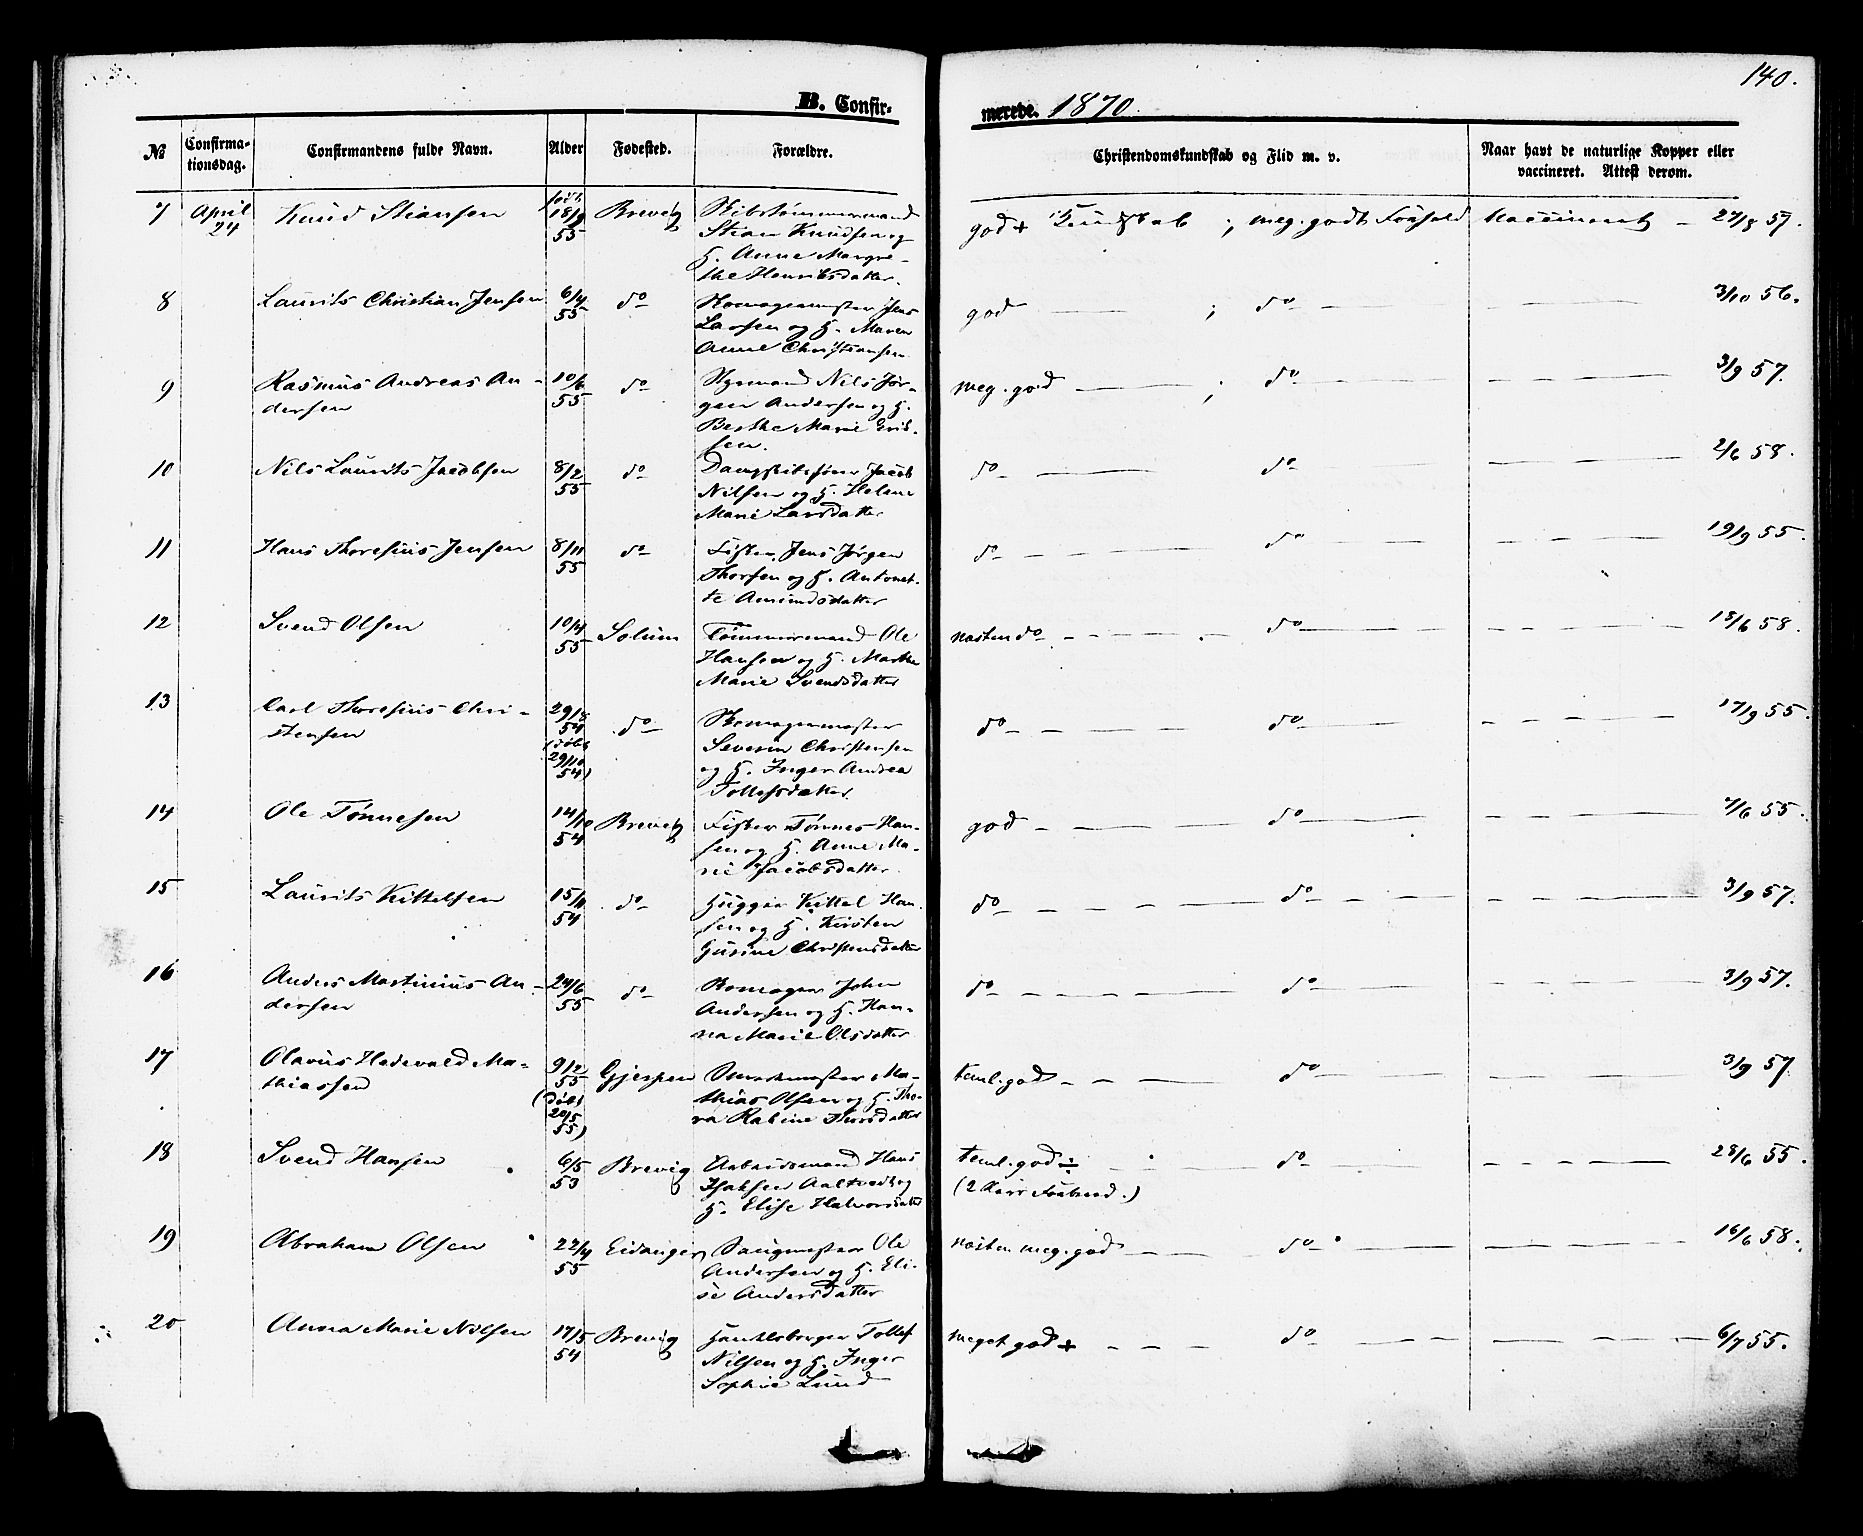 140.
B. Confir-
merede. 1870.
№ Confirma-tionsdag. Confirmandens fulde Navn. Alder Fødested. Forældre. Christendomskundskab og Flid m. v. Naar havt de naturlige Kopper eller vaccineret. Attest derom.
7 April 24 Knud Stiansen født 18/9 55 Brevig Skibstømmermand god + Kundskab ; meg. godt Forhold Vaccineret - 27/8 57.
Stian Knudsen og
H. Anne Margre-
the Henriksdatter.
8 Laurits Christian Jensen 6/4 55 do Skomagermester Jens god ; do 3/10 56.
Larsen og H. Maren
Anne Christiansen
9 Rasmus Andreas An-dersen 10/6 55 do Styrmand Nils Jør- meg. god ; do 3/9 57.
gen Andersen og H.
Berthe Marie Erik-
sen.
10 Nils Laurits Jacobsen 8/2 55 do Jacob do do 2/6 58.
Nilsen og H. Helene
Marie Larsdatter
11 Hans Thoresius Jensen 8/11 55 do Fisker Jens Jørgen do do 19/9 55.
Thorsen og H. Antonet-
te Amundsdatter
12 Svend Olsen 10/4 55 Solum Tømmermand Ole næsten do do 18/6 58.
Hansen og H. Marthe
Marie Svendsdatter
13 Carl Thoresius Chri-stensen 29/8 54 (døbt 29/10 54) do Skomagermester do do 17/9 55.
Severin Christensen
og H. Inger Andrea
Tollefsdatter.
14 Ole Tønnesen 14/10 54 Brevig Fisker Tønnes Han- god do 7/6 55.
sen og H. Anne Ma-
rie Jacobsdatter.
15 Laurits Kittelsen 15/11 54 do Hugger Kittel Han- do do 3/9 57.
sen og H. Kirsten
Gurine Christensdatter
16 Anders Martinius An-dersen 24/6 55 do Skomager John do do 3/9 57.
Andersen og H. Han-
na Marie Olsdatter
17 Olavus Hedevald Ma-thiassen 9/2 55 (døbt 20/5 55) Gjerpen Smedemester Ma- teml. god do 3/9 57
thias Olsen og H. Tho-
ra Rabine Thorsdatter
18 Svend Hansen 6/5 53 Brevig Arbeidsmand Hans teml. god ÷ do 28/6 55.
Isaksen Aaltvedt og (2 Aars Forbered.)
H. Elise Halvorsdatter
19 Abraham Olsen 22/4 55 Eidanger Ole næsten meg. god do 16/6 58.
Andersen og H. Eli-
se Andersdatter
20 Anna Marie Nilsen 17/5 54 Brevig Handelsborger Tollef meget god + do 6/7 55.
Nilsen og H. Inger
Sophie Lund